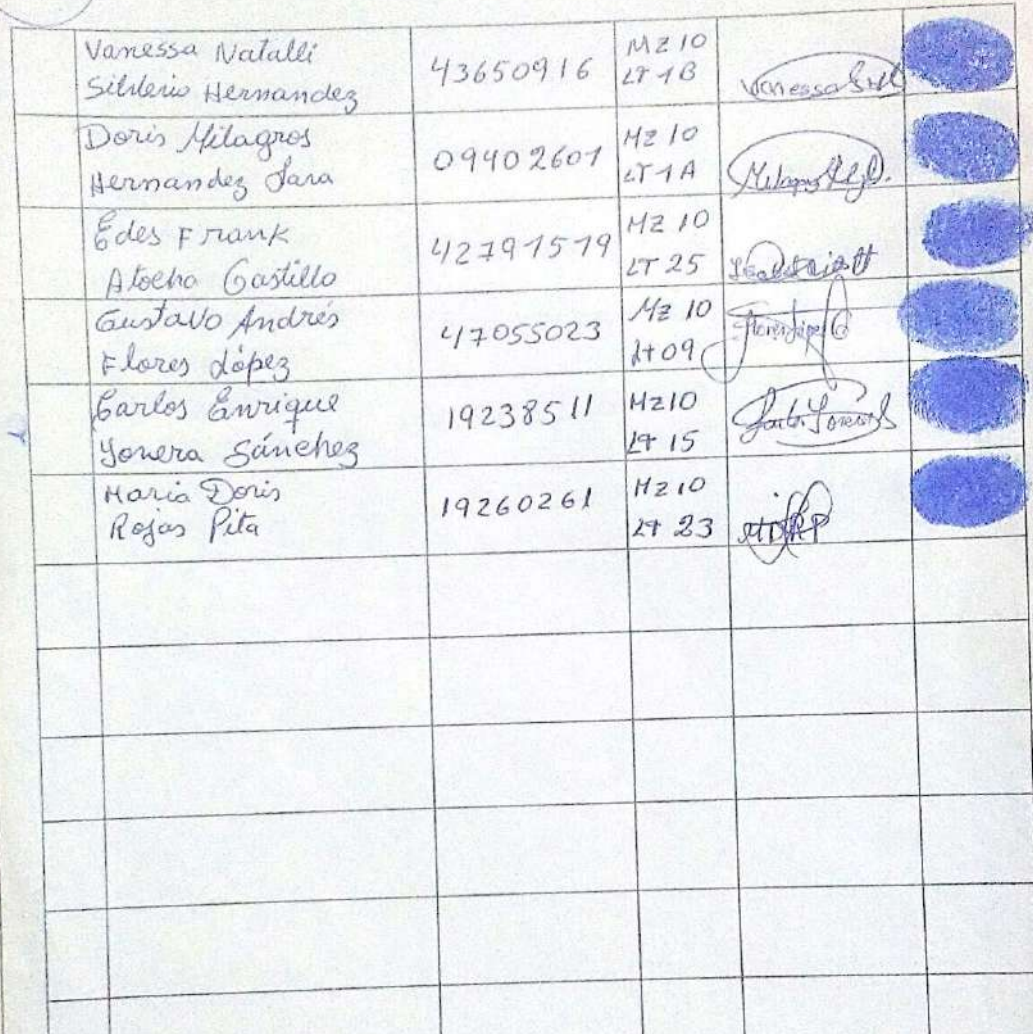 Vanessa Natalli
Hernandez
43650916
MZ 10
LT 1B
Vanessa
Doris Milagros
Hernandez Jara
09402601
MZ 10
LT 1A
Milagros
Edes Frank
Atocha Castillo
42791519
MZ 10
LT 25
Gustavo Andrés
Flores López
47055023
MZ 10
Lt 09
Carlos Enrique
Yonera Sánchez
19238511
MZ 10
LT 15
Maria Doris
Rojas Pita
19260261
MZ 10
LT 23